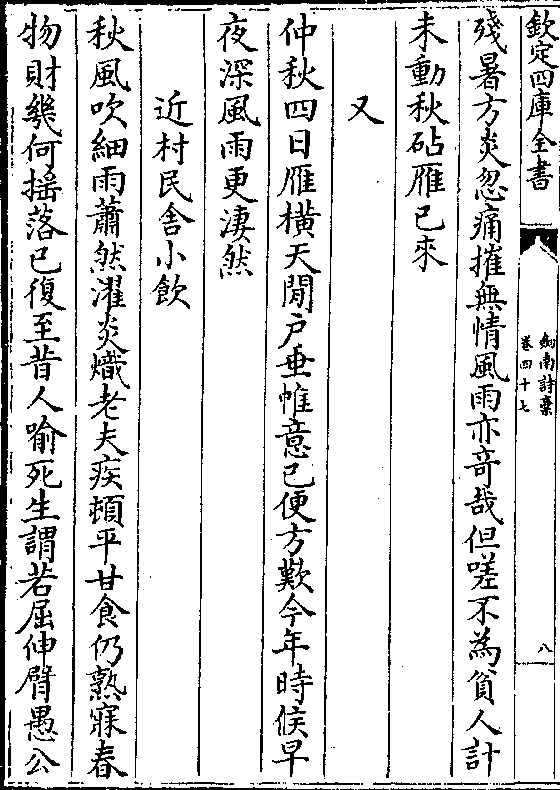 欽定四庫全書
劍南詩藁
卷四十七
八
殘暑方炎忽痛摧無情風雨亦竒哉但嗟不為貧人計
未動秋砧雁已來
又
仲秋四日雁橫天閒戶垂帷意已便方歎今年時候早
夜深風雨更淒然
近村民舍小飲
秋風吹細雨蕭然濯炎熾老夫疾頓平甘食仍熟寐春
物財幾何揺落已復至昔人喻死生謂若屈伸臂愚公